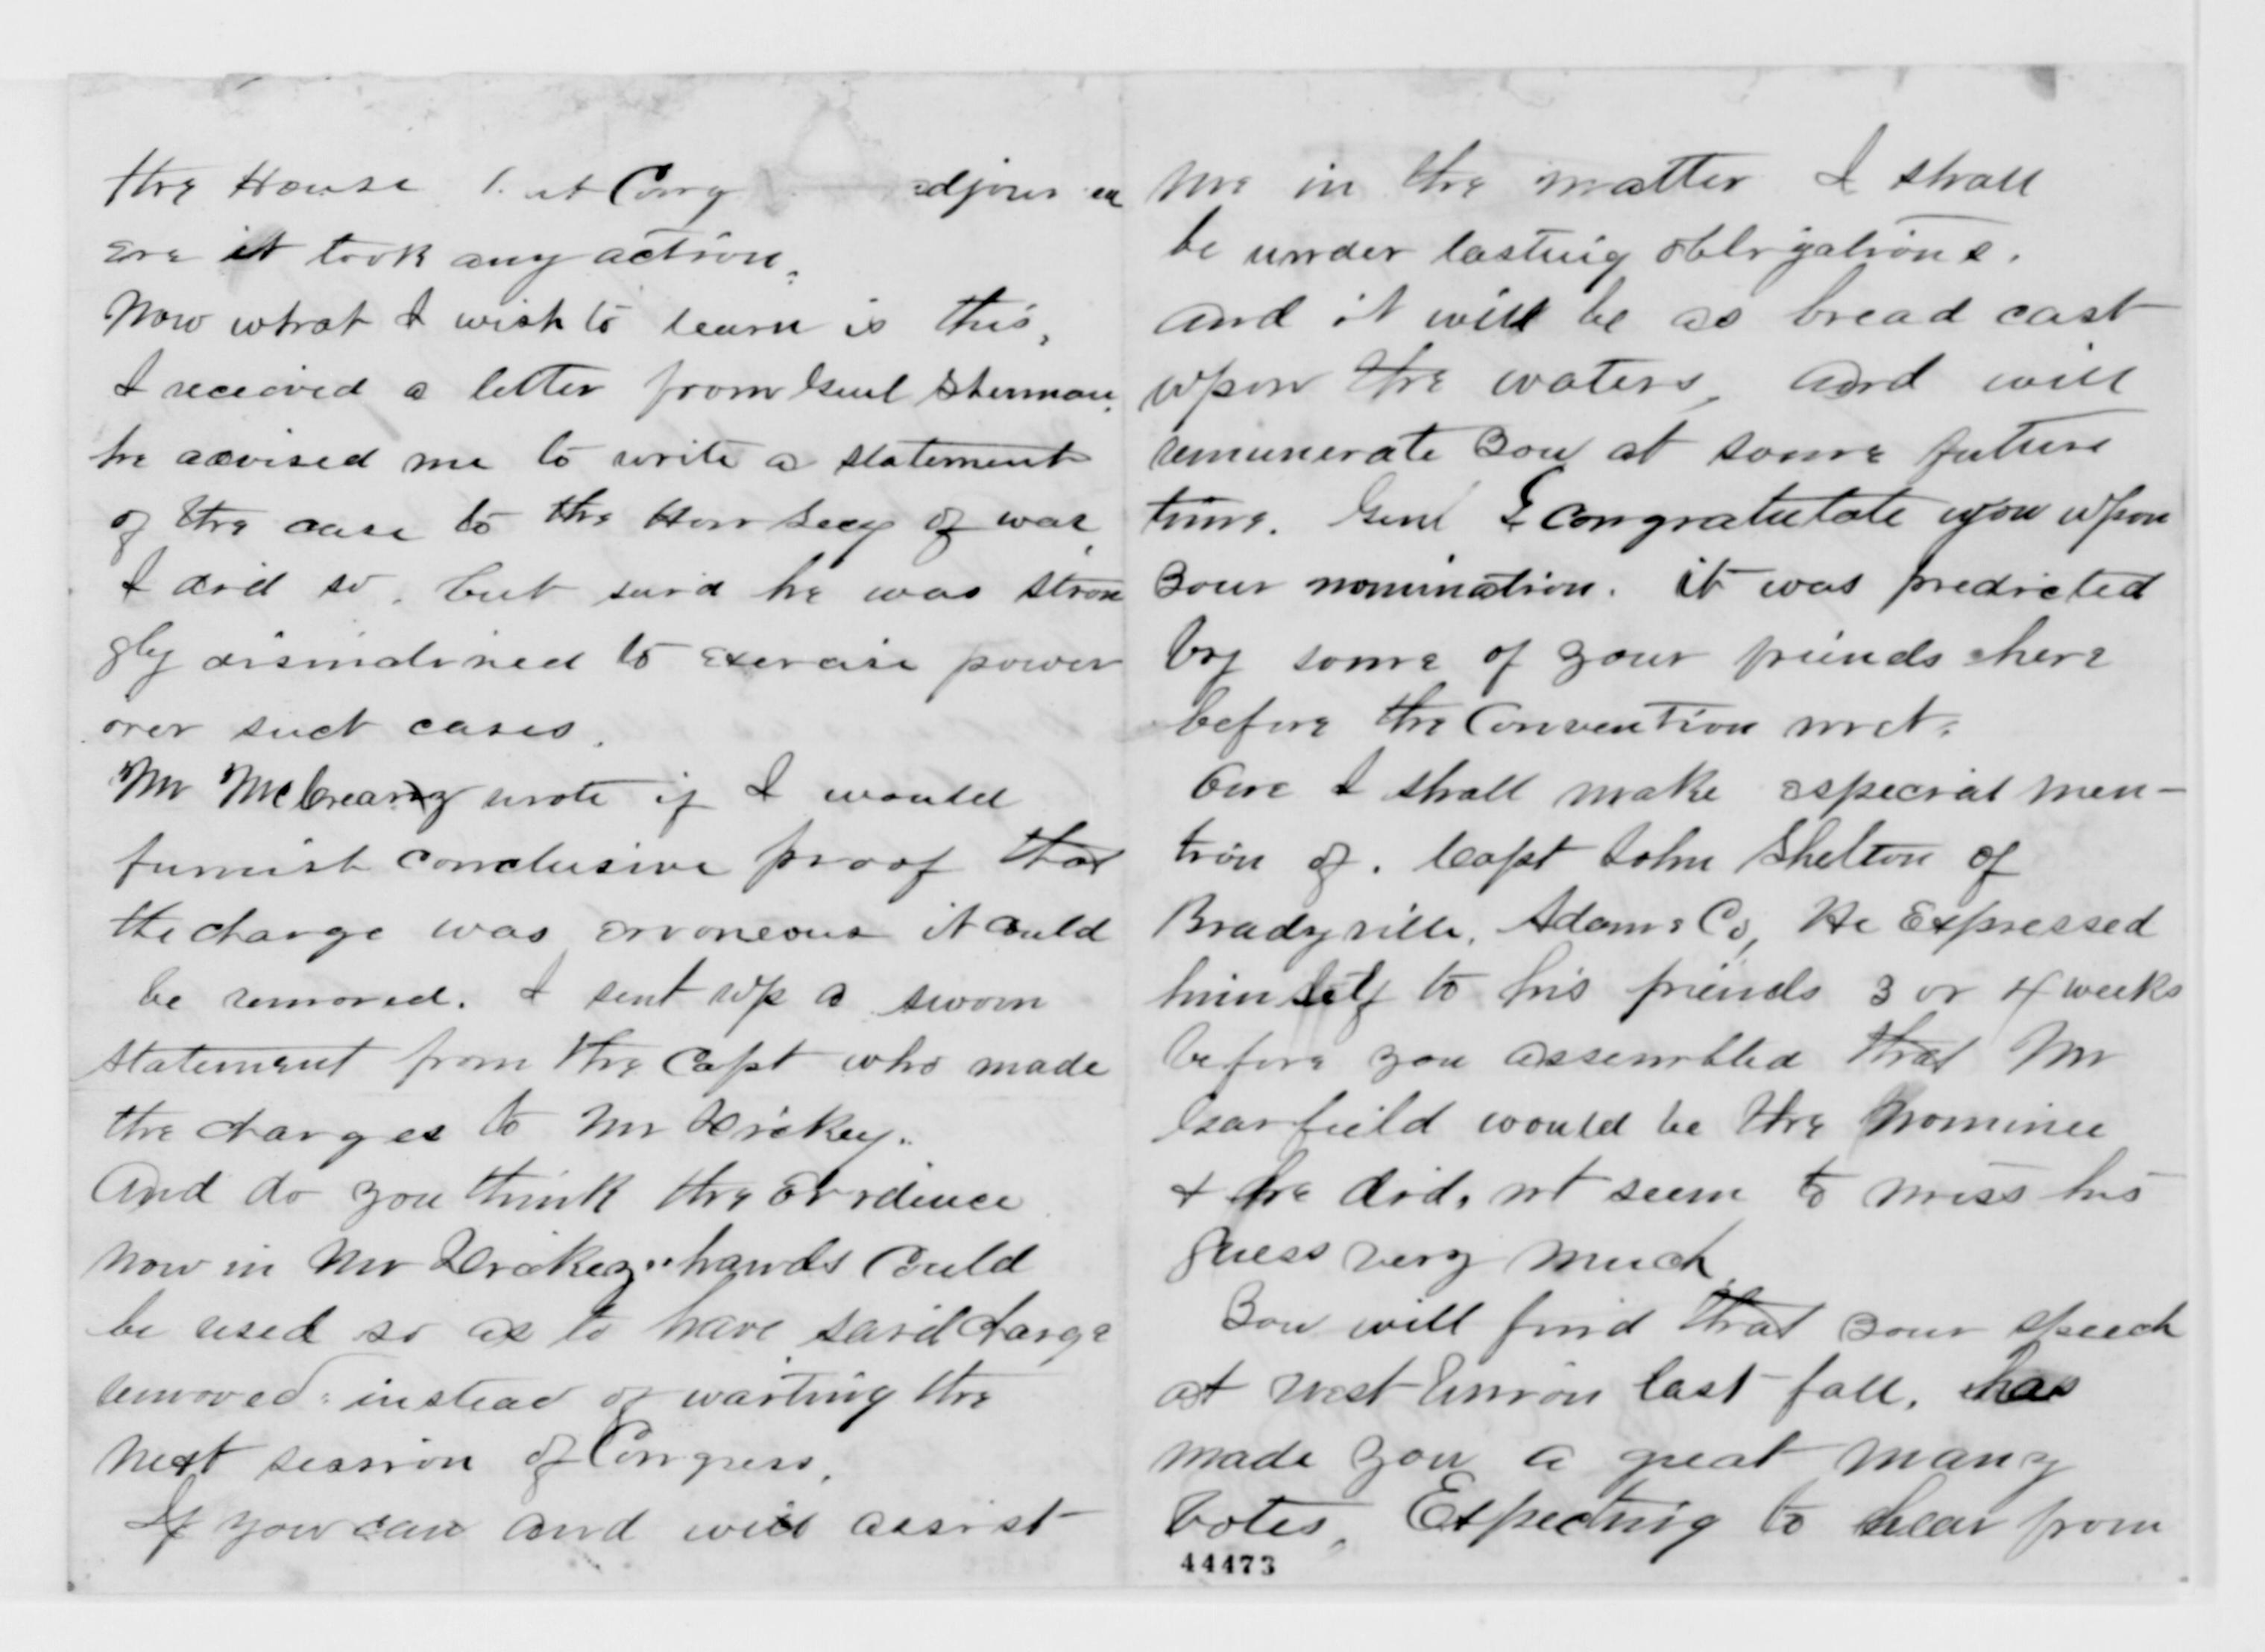 the House but Cong adjourned
ere it took any action.
Now what I wish to learn is this,
I received a letter from Genl Sherman.
he advised me to write a statement
of the case to the Hon Secy of war,
I did so. but said he was stron
gly disinclined to exercise power
over such cases.
Mr McCreary wrote if I would
furnish conclusive proof that
the charge was erroneous it could
be removed. I sent up a sworn
statement from the Capt who made
the charges to Mr Dickey.
And do you think the evidence
now in Mr Dickey's hands could
be used so as to have said charge
removed instead of waiting the
next session of Congress.
If you can and will assist
me in the matter I shall
be under lasting obligations.
and it will be as bread cast
upon the waters, and will
remunerate you at some future
time. Genl I congratulate you upon
your nomination. it was predicted
by some of your friends here
before the Convention met.
One I shall make especial men-
tion of. Capt John Shelton of
Bradyville, Adams Co, He Expressed
himself to his friends 3 or 4 weeks
before you assembled that Mr
Garfield would be the nominee
& he did, nt seem to miss his
guess very much.
You will find that your speech
at West Union last fall, has
made you a great many
votes. Expecting to hear from
44473